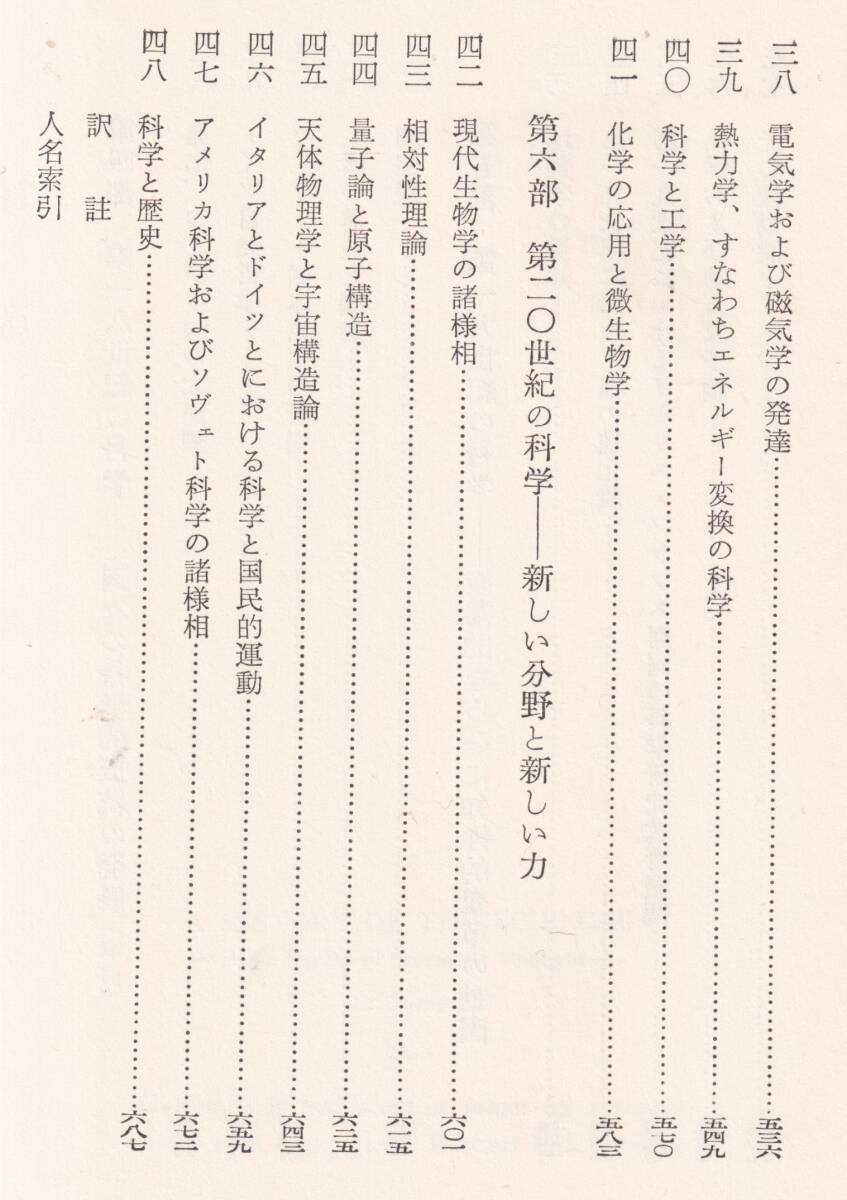 三八 電気学および磁気学の発達……五三六
三九 熱力学、すなわちエネルギー変換の科学……五四九
四〇 科学と工学……五七〇
四一 化学の応用と微生物学……五八三
第六部 第二〇世紀の科学——新しい分野と新しい力
四二 現代生物学の諸様相……六〇一
四三 相対性理論……六一五
四四 量子論と原子構造……六二五
四五 天体物理学と宇宙構造論……六四三
四六 イタリアとドイツとにおける科学と国民的運動……六五九
四七 アメリカ科学およびソヴェト科学の諸様相……六七二
四八 科学と歴史……六八七
訳註
人名索引